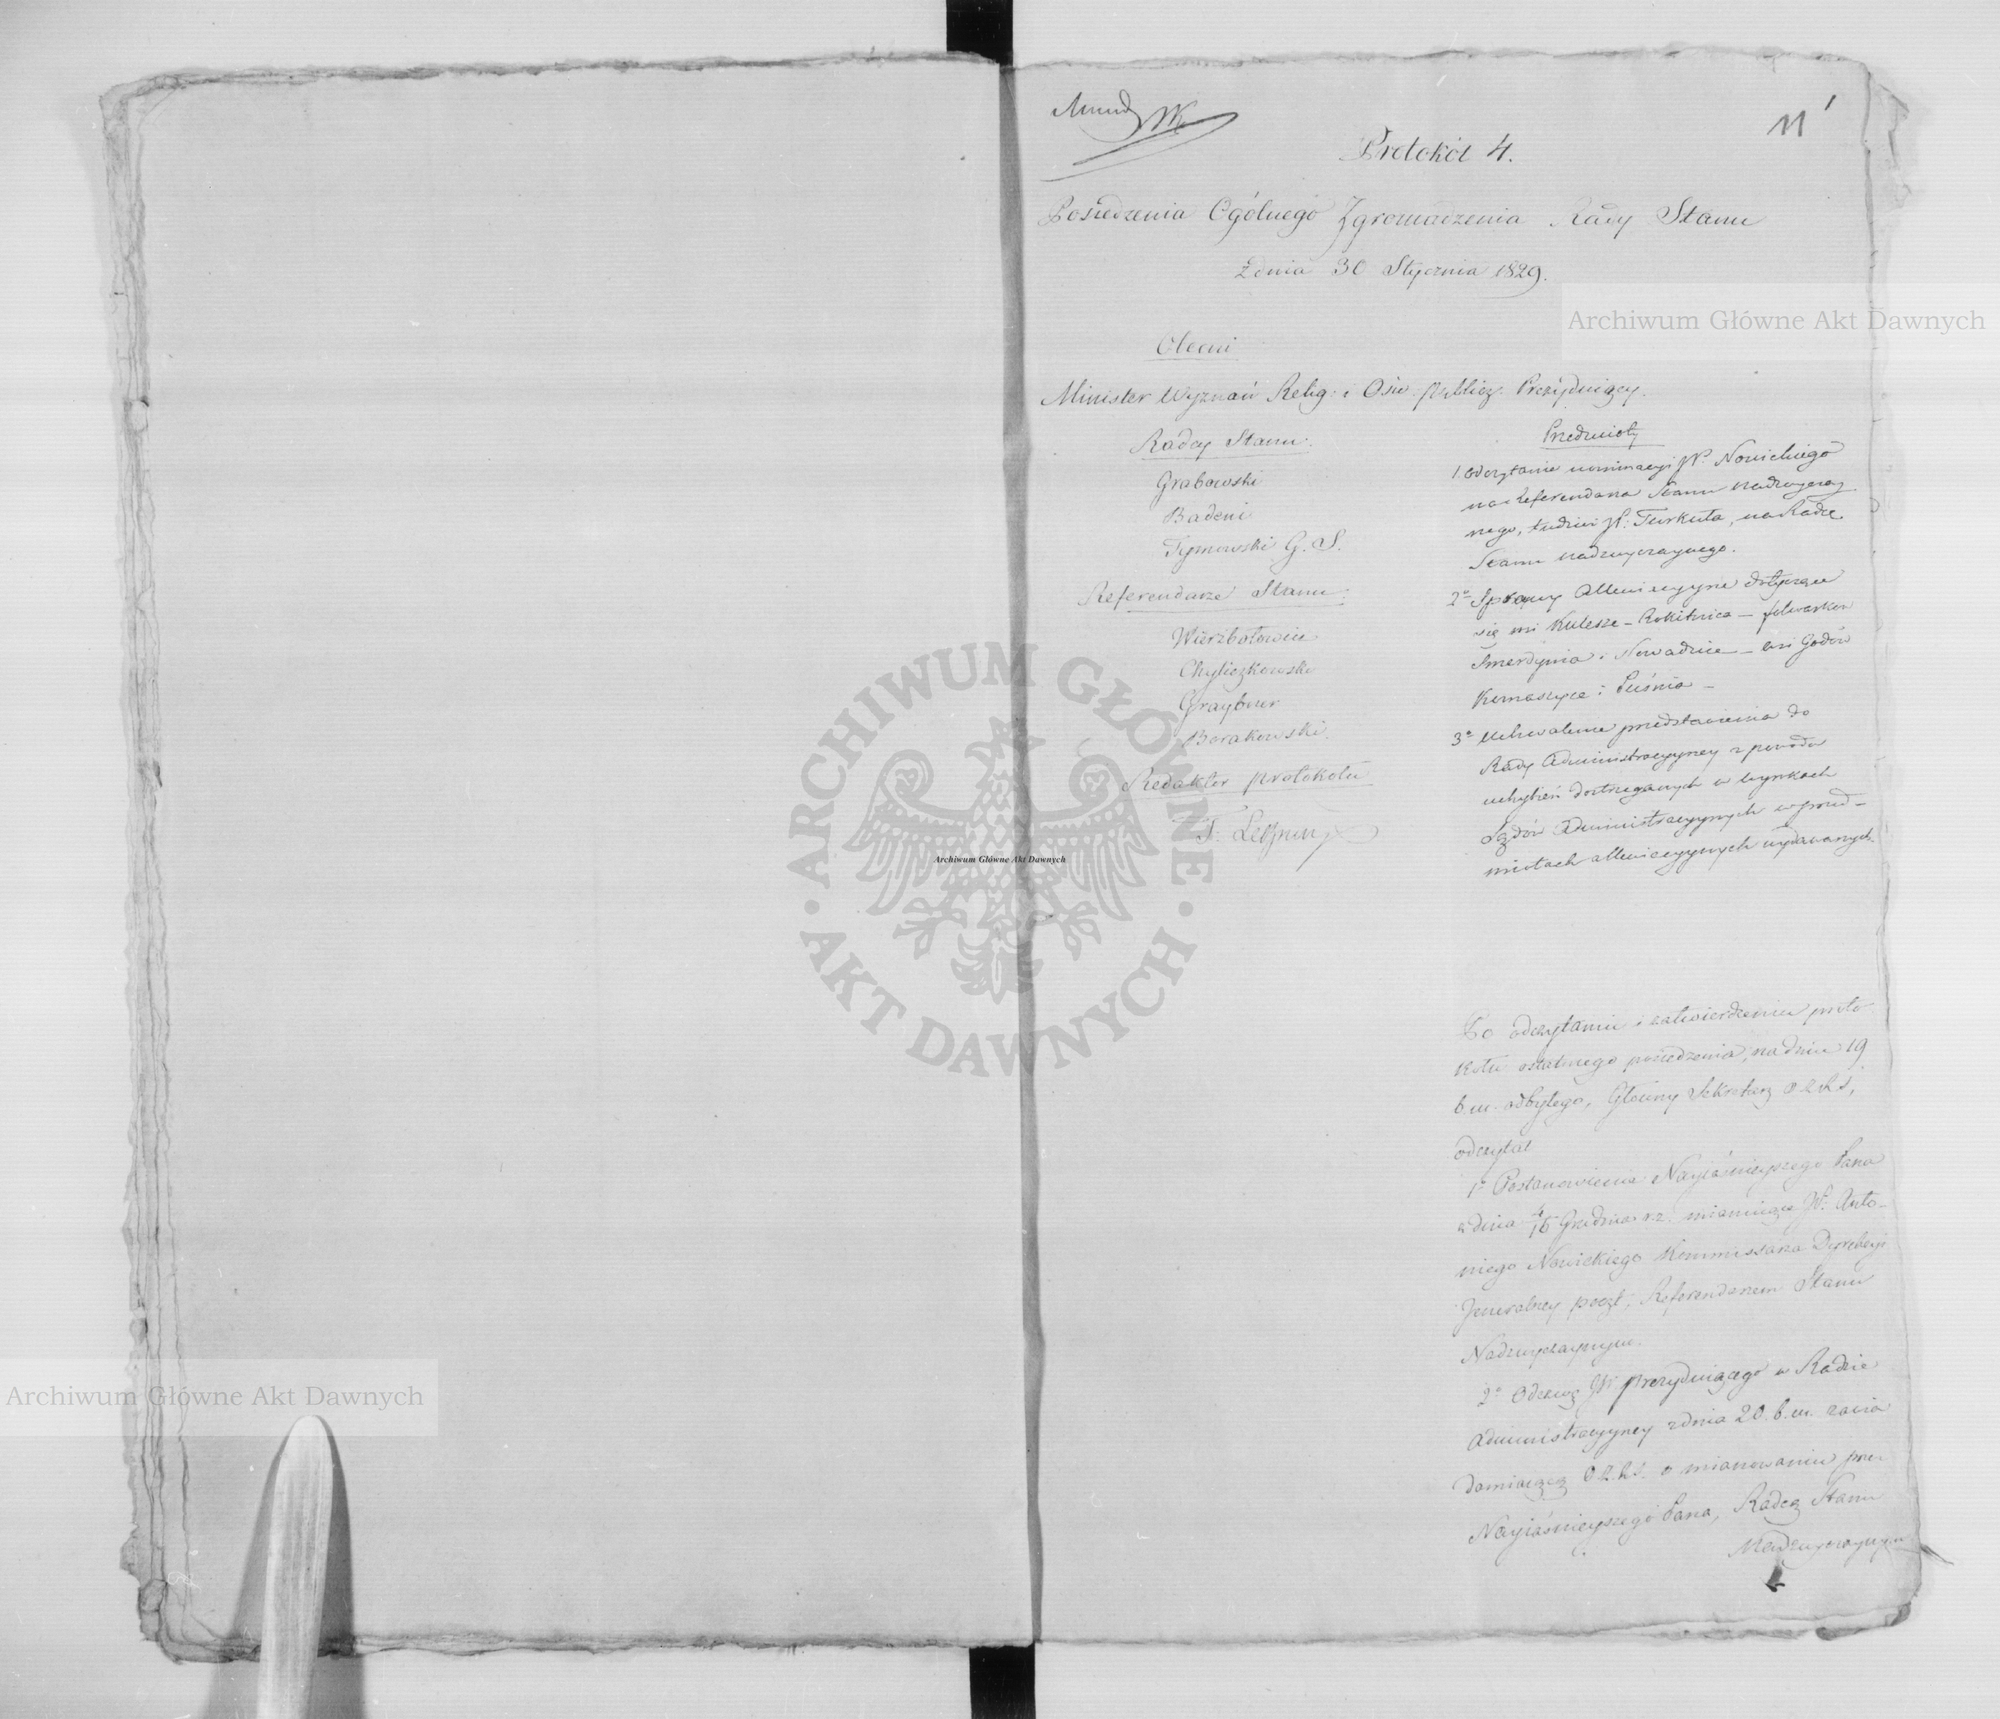 11
Protokół 4.
Posiedzenia Ogólnego Zgromadzenia Rady Stanu
Z dnia 30 Stycznia 1829.
Obecni
Minister Wyznań Relig: i Ośw. publicz. Prezyduiący.
Radcy Stanu:
Grabowski
Badeni
Tymowski G. S.
Referendarze Stanu:
Wierzbołowicz
Chyliczkowski
Graybner
Borakowski.
Redaktor protokołu
Przedmioty
1. Odczytanie nominacyi JW. Nowickiego
na Referendarza Stanu nadzwyczay-
nego, tudzież JW: Turkuła, na Radcę
Stanu nadzwyczaynego.
2o Sprawy allewiacyjne dotyczące
się wsi Kulesze – Rokitnica – folwarków
Smerdynia i Nowadnice – wsi Godów
Komaszyce i Puśnia –
3o Uchwalenie przedstawienia do
Rady Administracyyney z powodu
uchybień dostrzeganych w wyrokach
Sądów Administracyynych w przed-
miotach allewiacyynych wydawanych
Po odczytaniu i zatwierdzeniu proto-
kołu ostatniego posiedzenia, na dniu 19
b.m. odbytego, Główny Sekretarz O.Z.R.S,
odczytał
1o Postanowienie Nayiaśnieyszego Pana
z dnia 4/16 Grudnia r.z. mianuiące JW: Anto-
niego Nowickiego Kommissarza Dyrekcyi
Jeneralney poczt, Referendarzem Stanu
Nadzwyczaynym.
2o Odezwę JW prezyduiącego w Radzie
Administracyyney z dnia 20. b.m. zawia
damiaiącą O.Z.R.S. o mianowaniu przez
Nayiaśnieyszego Pana, Radcą Stanu
Nadzwyczaynym
Archiwum Główne Akt Dawnych
ARCHIWUM GŁÓWNE AKT DAWNYCH
Archiwum Główne Akt Dawnych
Archiwum Główne Akt Dawnych